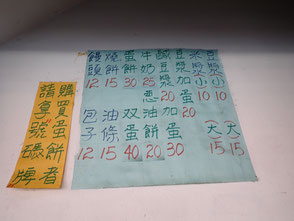 購買蛋餅者
請拿號碼牌
饅頭 12
燒餅 15
蛋餅 30
牛奶 25
漿 20
豆漿加蛋 20
米漿(小) 10
豆漿(小) 10
包子 12
油條 15
双蛋 40
葱油餅 20
加蛋 30
(大) 15
(大) 15